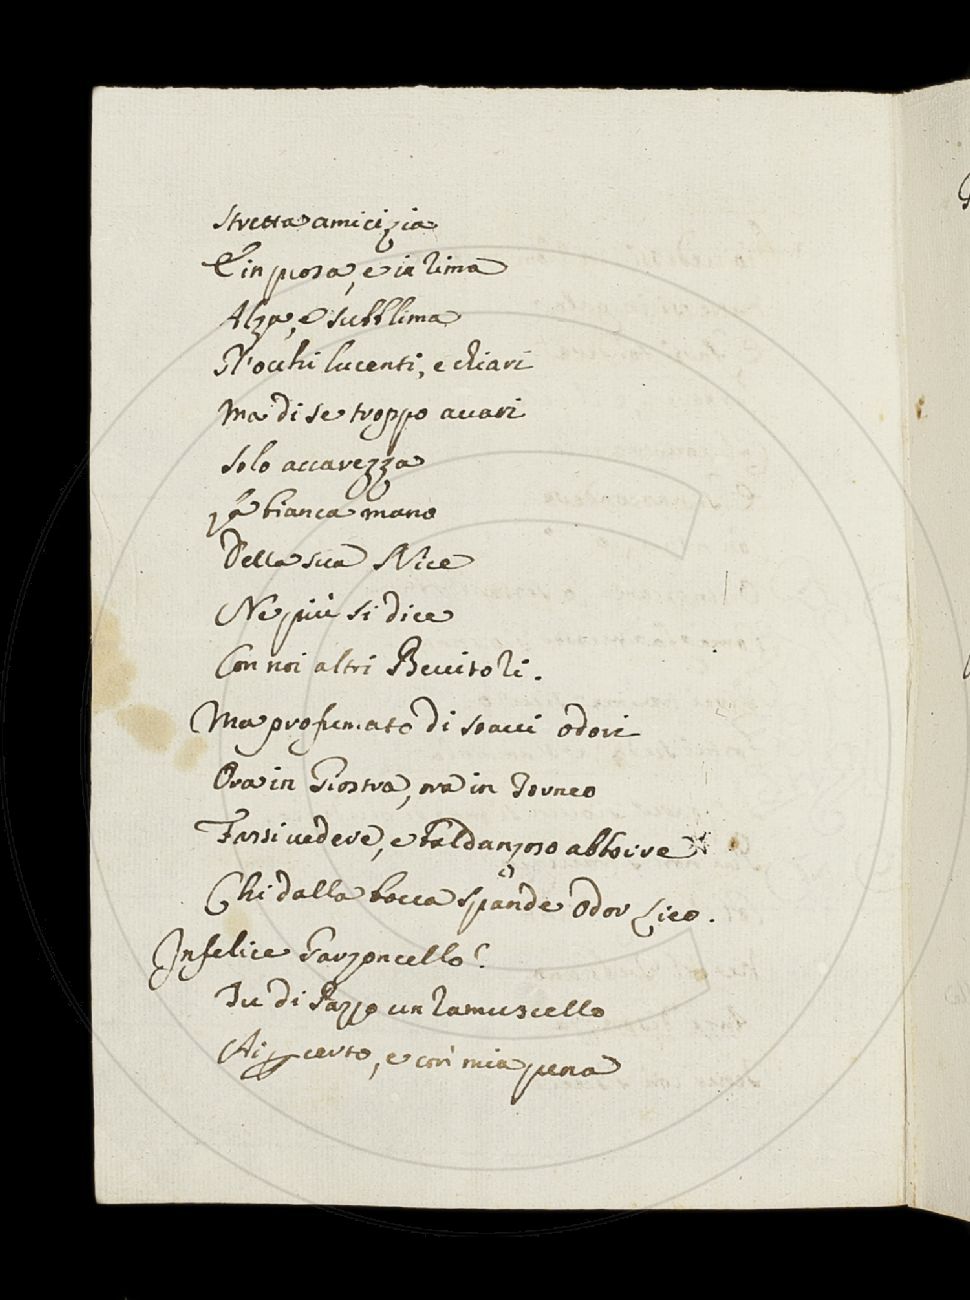 Stretta amicizia
E in prosa, e in rima
Alza, e subblima
N'occhi lucenti, e chiari
Ma di se troppo avari
Solo accarezza
La bianca mano
Della sua Nice
Ne più si dice
Con noi altri
Ma profumato di soavi odori
Ora in Giostra, ora in Torneo
Farsi vedere, e baldanzoso abborre
Chi dalla bocca spande odor
Infelice Garzoncello!
Tu di Pazzo un ramuscello
Ai certo, e con mia pena